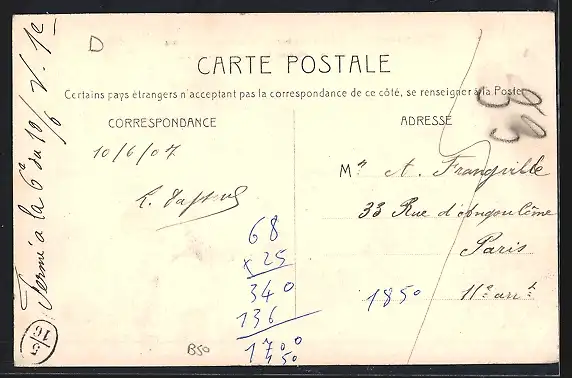 D
CARTE POSTALE
Certains pays étrangers n'acceptant pas la correspondance de ce côté, se renseigner à la Poste
CORRESPONDANCE
ADRESSE
10/6/07
Mr A. Frangville
33 Rue d'Angoulême
Paris
11e arrt
68
x 25
340
136
1700
150
1850
B50
Fermé à la 6e du 10/6
5/16